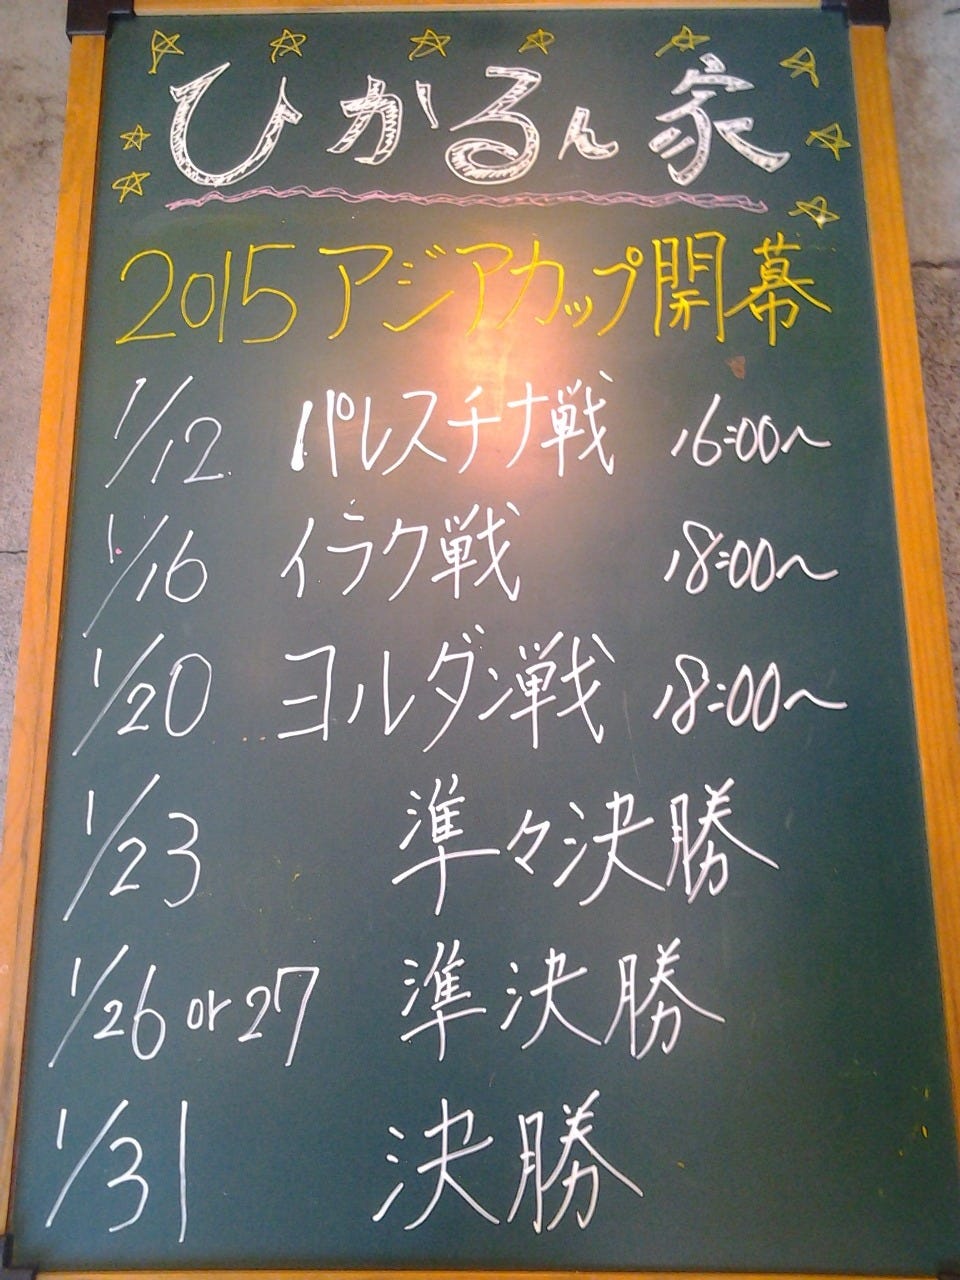 ひかるん家
2015アジアカップ開幕
1/12 パレスチナ戦 16:00~
1/16 イラク戦 18:00~
1/20 ヨルダン戦 18:00~
1/23 準々決勝
1/26 or 27 準決勝
1/31 決勝